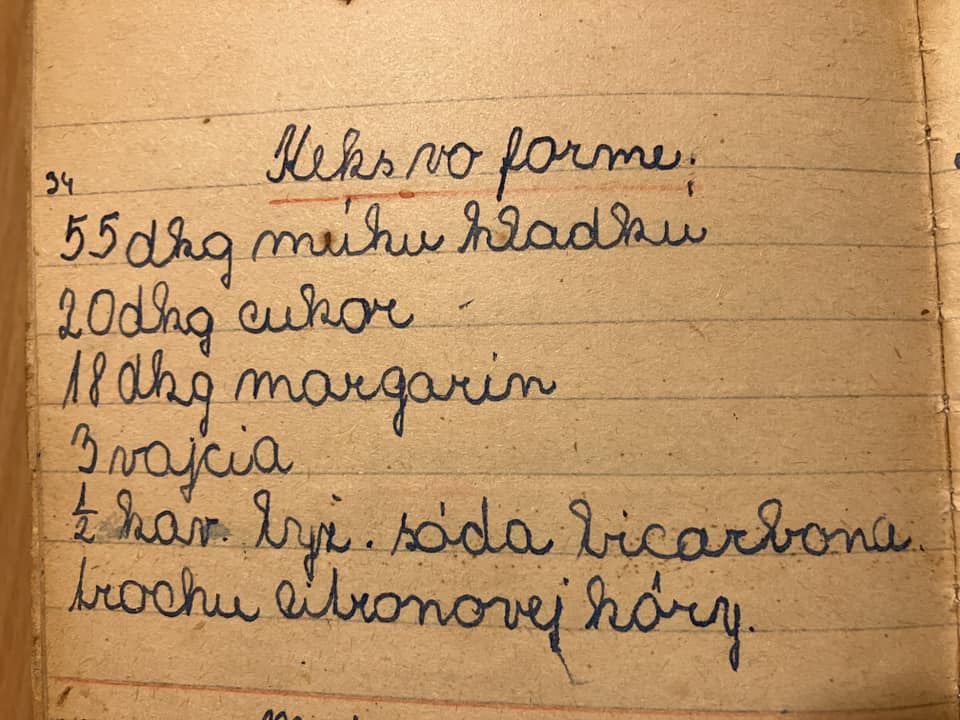 Keks vo forme.
34
55 dkg múku hladkú
20 dkg cukor
18 dkg margarín
3 vajcia
½ kav. lyž. sóda bicarbona.
trochu citronovej kóry.